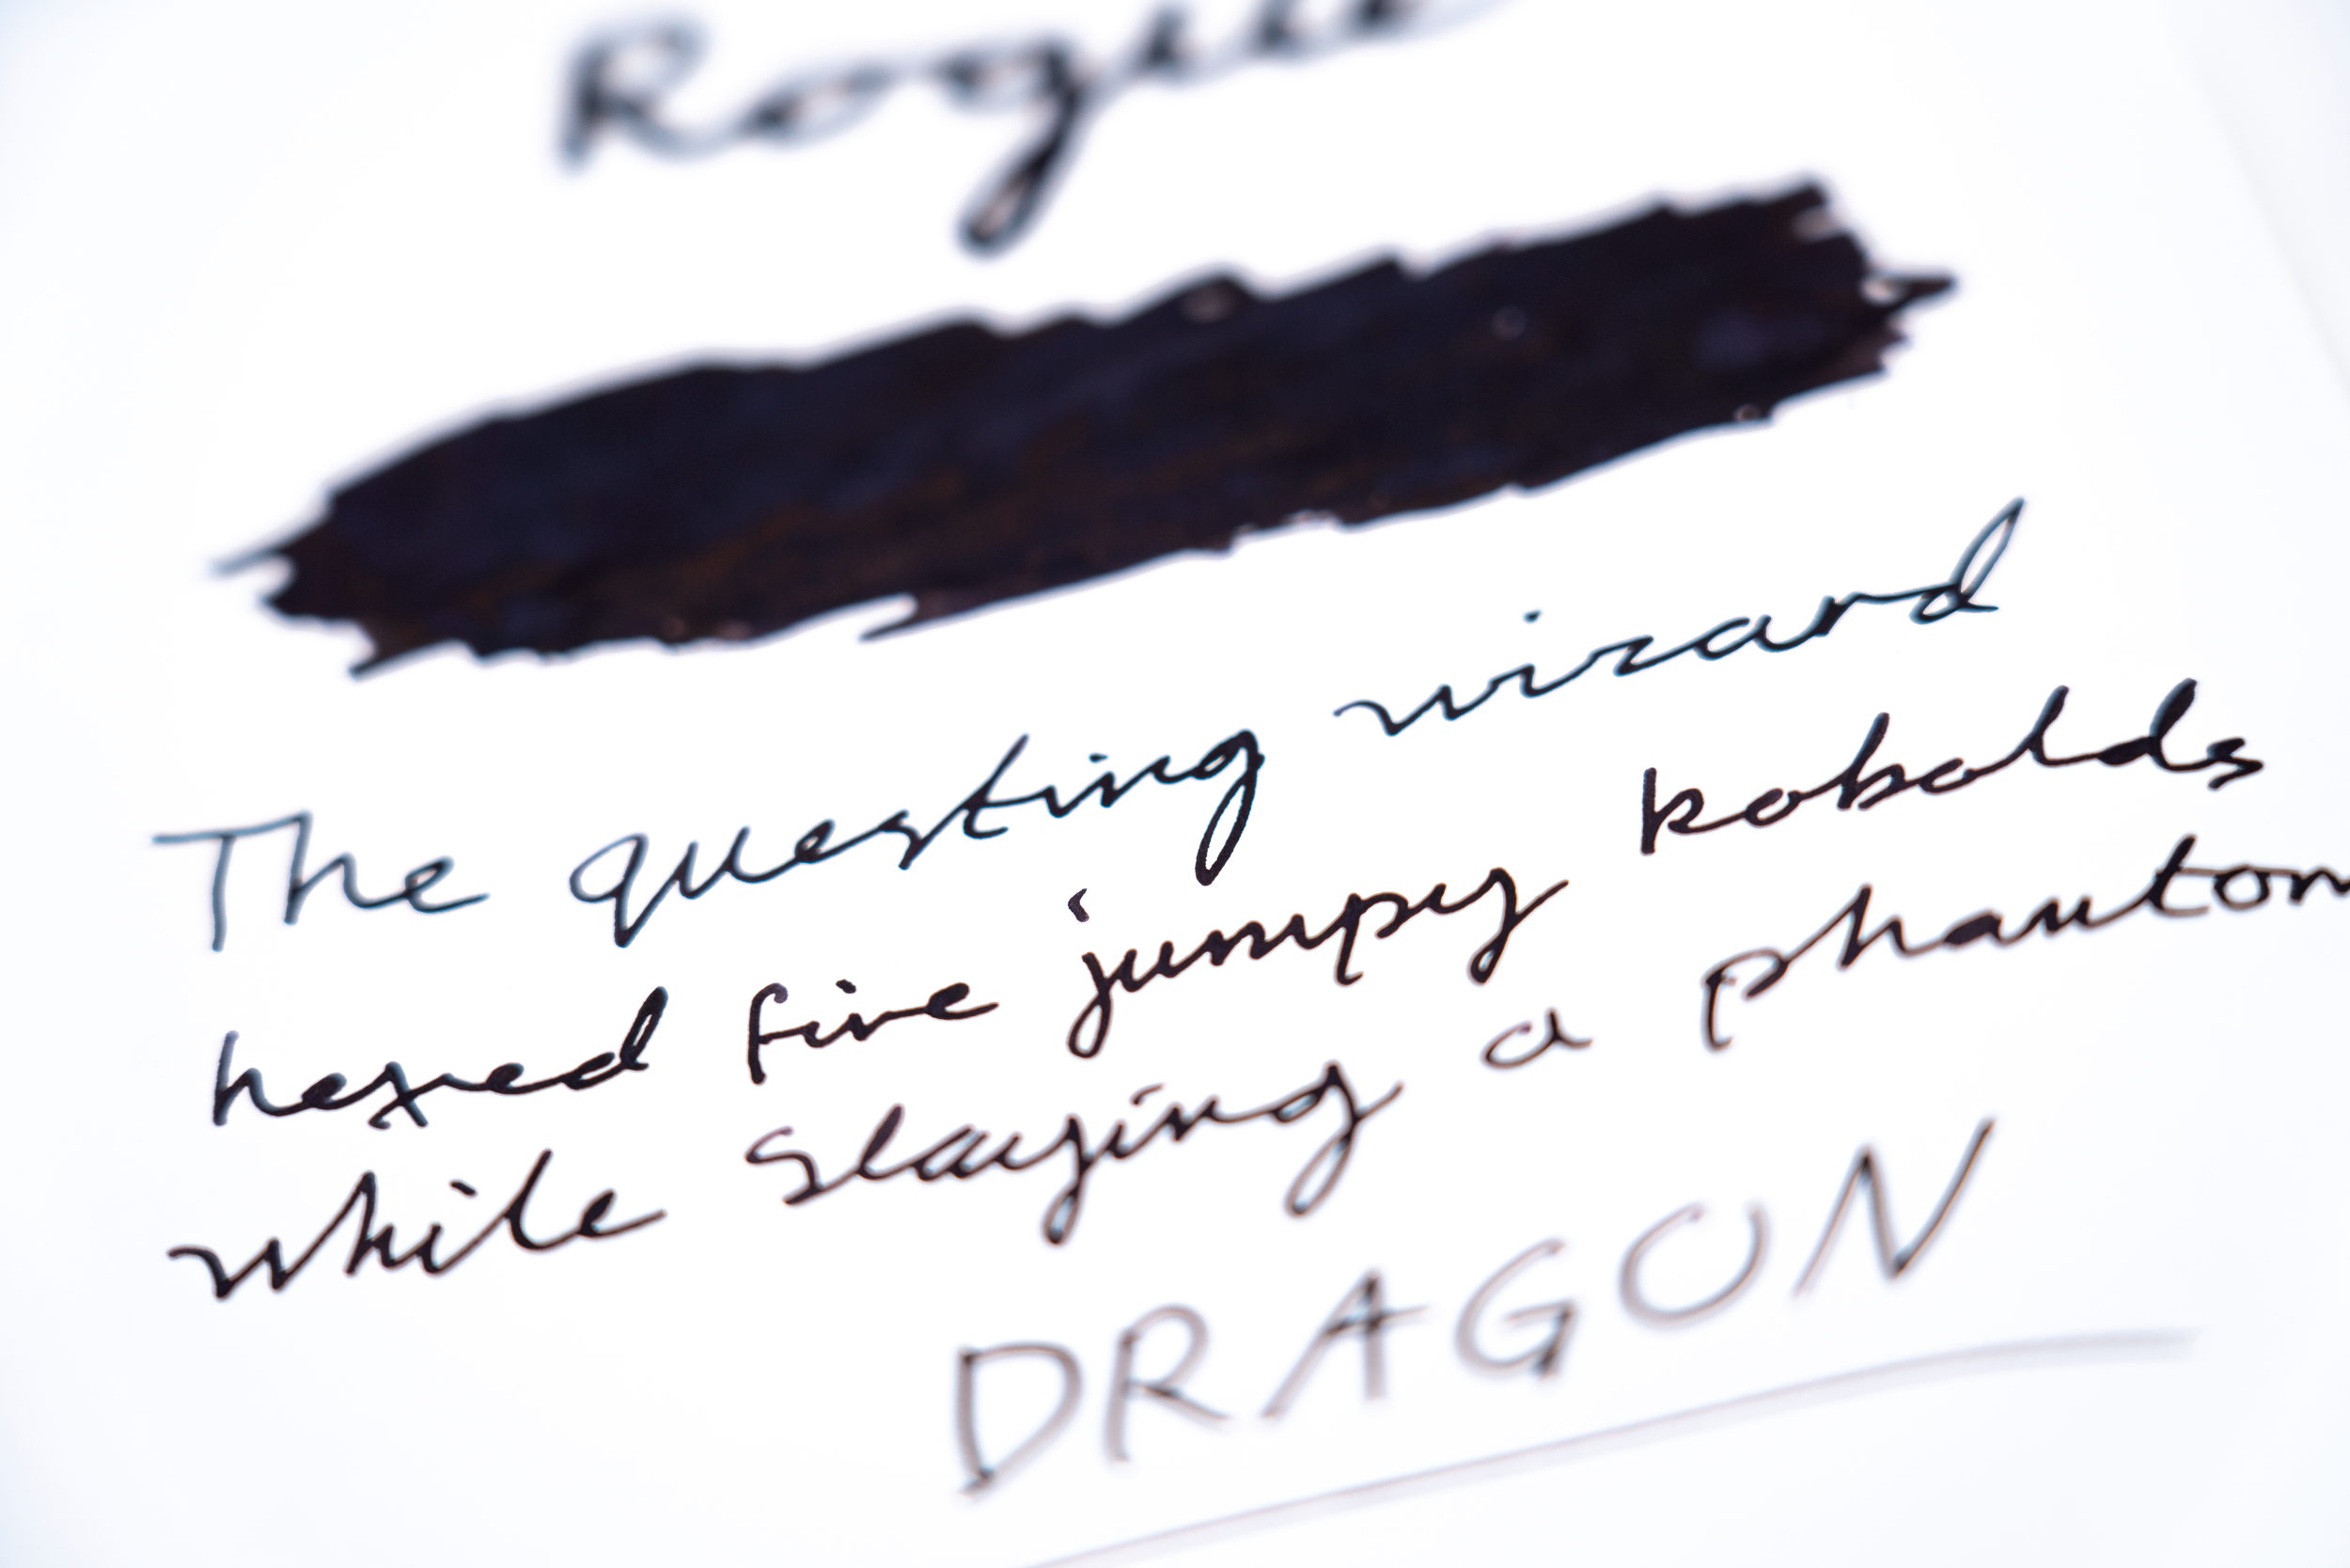 Rogue
The questing wizard
hexed five jumpy kobolds
while slaying a phantom
DRAGON